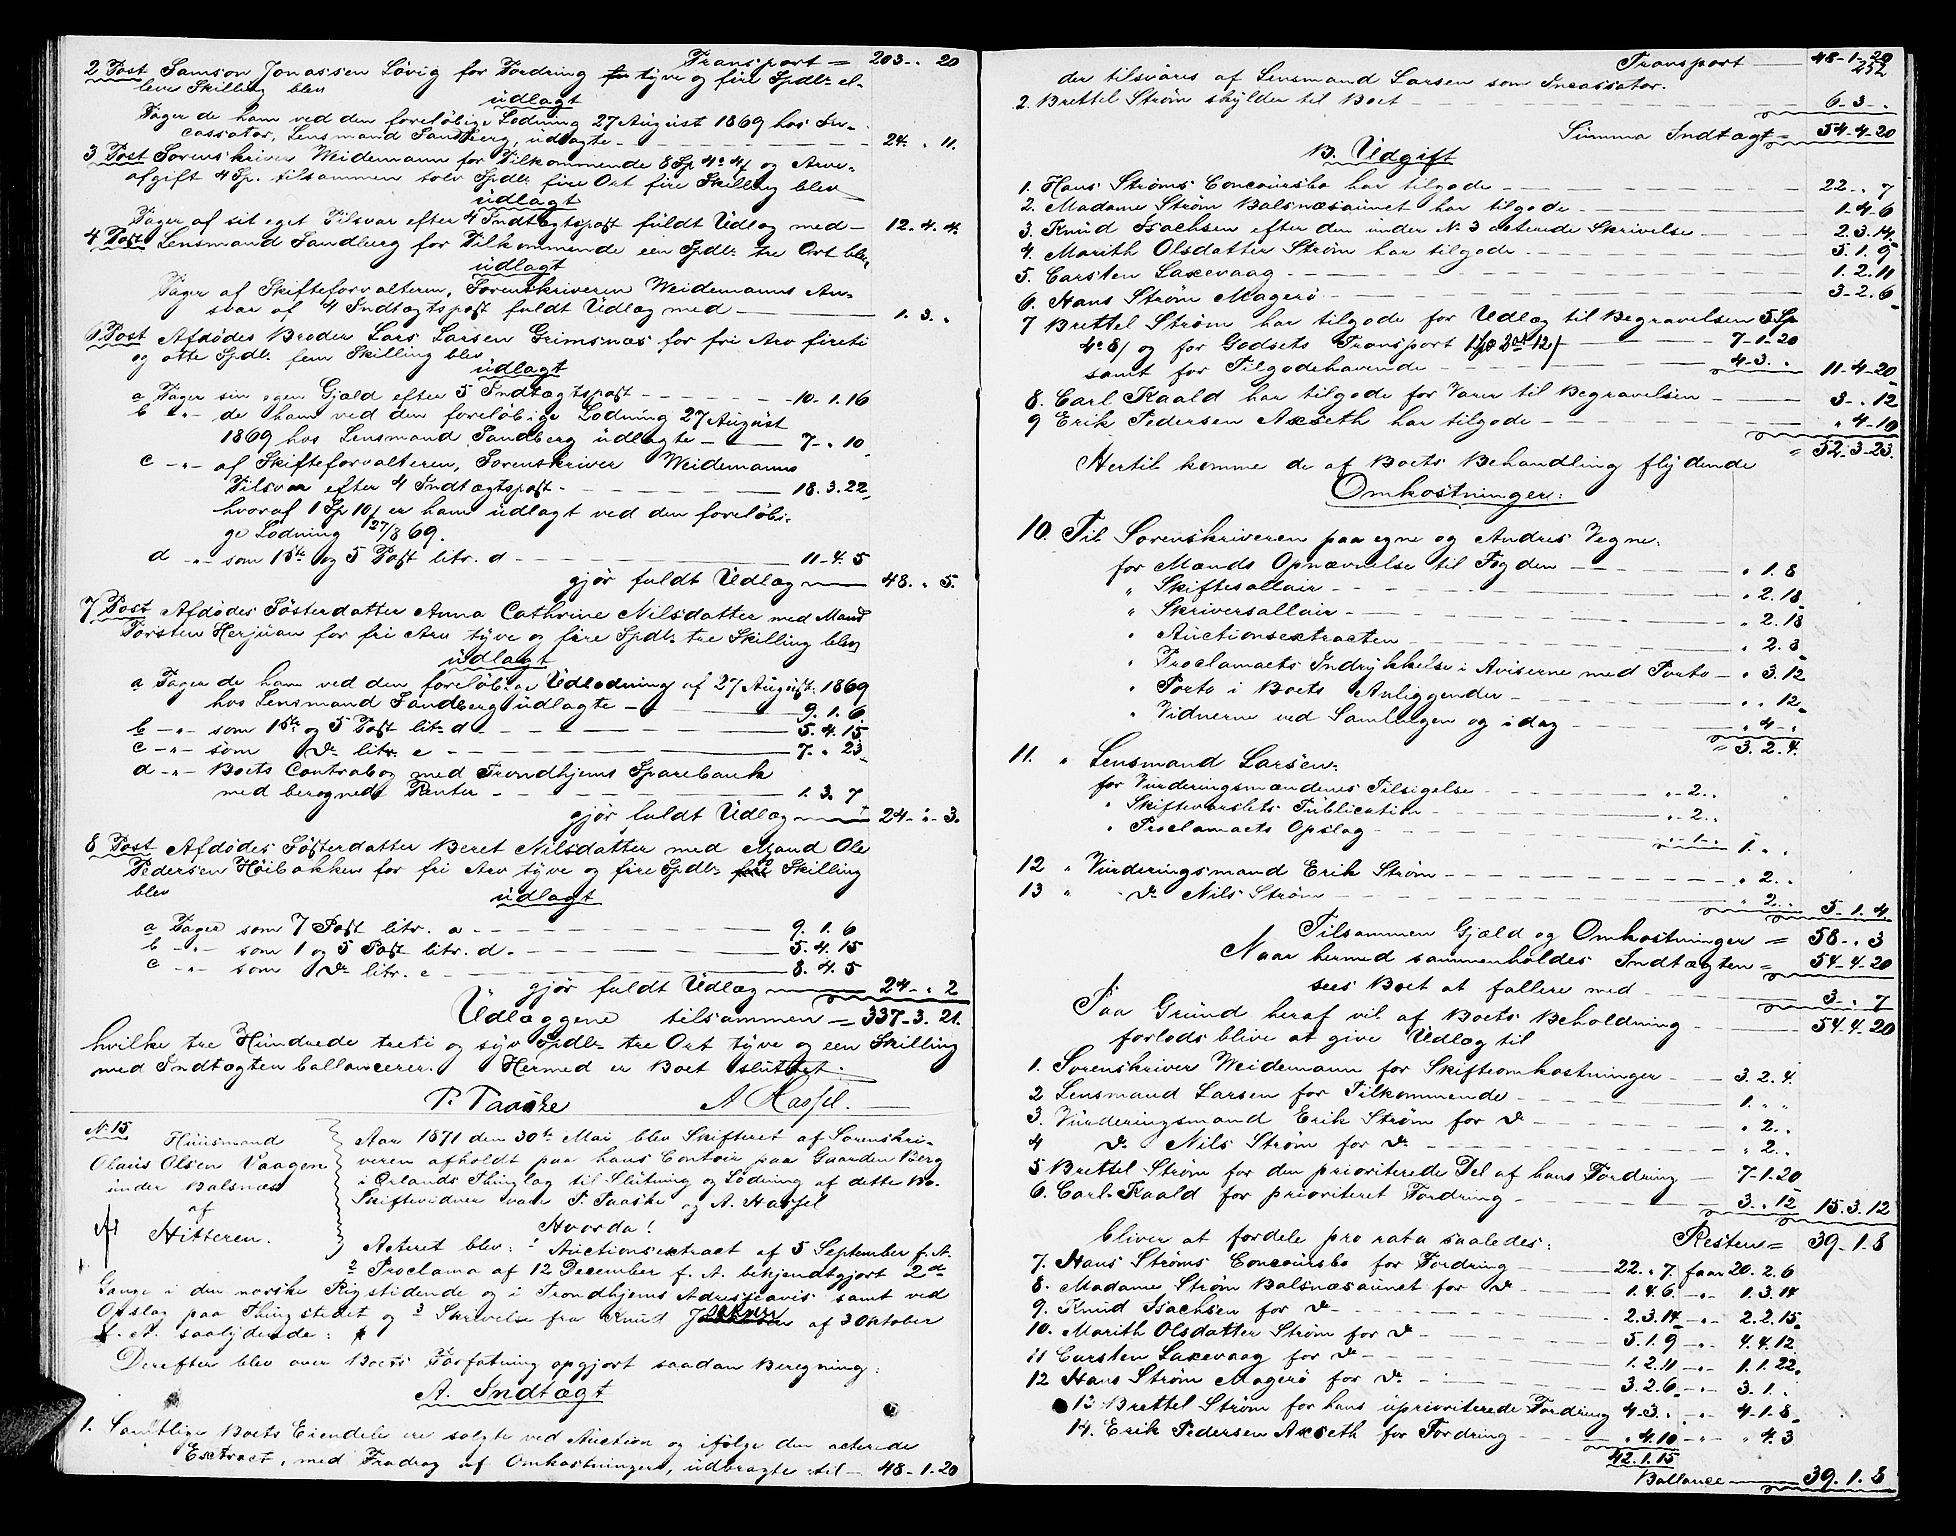 Transport = 203 - . 20
2 Post Samson Jonassen Løvig for Fordring tyve og fire Spdlr el-
leve Skilling blev
udlagt
Tager de ham ved den foreløbige Lodning 27 August 1869 hos In-
cassator, Lensmand Sandberg, udlagte - 24. . 11.
3 Post Sorenskriver Weidemann for Tilkommende 8 Sp 4 o 4 s og Arve-
afgift 4 Sp. tilsammen tolv Spdlr fire Ort fire Skilling blev
udlagt
Tager af sit eget Tilsvar efter 4 Indtægtspost fuldt Udlæg med - 12. 4. 4.
4 Post Lensmand Sandberg for Tilkommende een Spdlr tre Ort blev
udlagt
Tager af Skifteforvalteren, Sorenskriveren Weidemanns An-
svar af 4 Indtægtspost fuldt Udlæg med - 1. 3. .
6 Post Afdødes Broder Lars Larsen Grimsnæs for fri Arv fireti
og otte Spdlr fem Skilling blev
udlagt
a Tager sin egen Gjæld efter 5 Indtægtspost - 10. 1. 16
b -"- de ham ved den foreløbige Lodning 27 August
1869 hos Lensmand Sandberg udlagte - 7 - . 10
c -"- af Skifteforvalteren, Sorenskriver Weidemanns
Tilsvar efter 4 Indtægtspost - 18. 3. 22
hvoraf 1 Sp 10 s er ham udlagt ved den foreløbi-
ge Lodning 27/8 69.
d -"- som 1ste og 5 Post litr. d - 11. 4. 5
gjør fuldt Udlæg 48. . 5.
7 Post Afdødes Søsterdatter Anna Cathrine Nilsdatter med Mand
Torsten Herjuan for fri Arv tyve og fire Spdlr tre Skilling blev
udlagt
a Tager de ham ved den foreløbige Udlodning af 27 August 1869
hos Lensmand Sandberg udlagte - 9. 1. 6
b -"- som 1ste og 5 Post litr. d - 5. 4. 15
c -"- som do litr. c - 7. . 23
d -"- Boets Contrabog med Trondhjems Sparebank
med beregnede Renter - 1. 3. 7
gjør fuldt Udlæg 24 - . - 3.
8 Post Afdødes Søsterdatter Beret Nilsdatter med Mand Ole
Pedersen Höibakken for fri Arv tyve og fire Spdlr to Skilling
blev
udlagt
a Tager som 7 Post litr. a - 9. 1. 6
b -"- som 1 og 5 Post litr. d - 5. 4. 15
c -"- som do litr. c - 8. 4. 5
gjør fuldt Udlæg 24 - . 2
Udlæggene tilsammen = 337 - 3. 21.
hvilke tre Hundrede treti og syv Spdlr tre Ort tyve og een Skilling
med Indtægten ballancerer. Hermed er Boet sluttet.
P. Paaske A Hassel.
No 15
Huusmand
Olaus Olsen Vaagen
under Balsnæs
af
Hitteren.
Aar 1871 den 30te Mai blev Skifteret af Sorenskri-
veren afholdt paa hans Contoir paa Gaarden Berg
i Ørlands Thinglag til Slutning og Lodning af dette Bo.
Skiftevidner vare P. Paaske og A. Hassel
Hvorda!
Acteret blev: 1 Auctionsextract af 5 September f. A.
2 Proclama af 12 December f. A. bekjendtgjort 2de
Gange i den norske Rigstidende og i Trondhjems Adresseavis samt ved
Opslag paa Thingstedet og 3 Skrivelse fra Knud Isachsen af 3 Oktober
f. A. saalydende:
Derefter blev over Boets Forfatning opgjort saadan Beregning:
A. Indtægt
1. Samtlige Boets Eiendele ere solgte ved Auction og ifølge den acterede
Extract, med Fradrag af Omkostninger, udbragte til - 48 - 1. 20
252
Transport 48 - 1 - 20
der tilsvares af Lensmand Larsen som Incassator.
2. Brettel Strøm skylder til Boet - 6 - 3 - .
Summa Indtægt = 54 - 4 - 20
B. Udgift
1. Hans Strøms Concoursbo har tilgode - 22 - . 7
2. Madame Strøm Balsnæsaunet har tilgode - 1 - 4 - 6
3. Knud Isachsen efter den under No 3 acterede Skrivelse - 2. 3. 14
4. Marith Olsdatter Strøm har tilgode - 5. 1. 9
5. Carsten Laxevaag - 1. 2. 11
6. Hans Strøm Magerø - 3 - 2. 6
7 Brettel Strøm har tilgode for Udlæg til Begravelsen 5 Sp
4 o 8 s og for Godsets Transport 12 s - 7 - 1 - 20
samt for Tilgodehavende - 4 - 3. . 11 - 4 - 20
8. Carl Kaald har tilgode for Varer til Begravelsen - 3 - . 12
9 Erik Pedersen Axseth har tilgode - . 4 - 10
= 52 - 3 - 23.
Hertil komme de af Boets Behandling flydende
Omkostninger:
10. Til Sorenskriveren paa egne og Andres Vegne:
for Mænds Opnævnelse til Fogden - " 1. 8
" Skiftesallair - " 2. 18
" Skriversallair - " 2. 18
" Auctionsextracten - " 2. 8
" Proclamaets Indrykkelse i Aviserne med Porto - " 3. 12
" Porto i Boets Anliggender - " " 12
" Vidnerne ved Samlingen og idag - " 4 - "
= 3. 2. 4.
11. " Lensmand Larsen:
for Vurderingsmændenes Tilsigelse - " 2. .
" Skiftevarslets Publication - " 2. .
" Proclamaets Opslag - " 1. " 1. . .
12 " Vurderingsmand Erik Strøm - " 2. .
13 " do Nils Strøm - " 2. . 5 - 1. 4.
Tilsammen Gjæld og Omkostninger = 58 - . 3
Naar hermed sammenholdes Indtægten = 54 - 4 - 20
sees Boet at fallere med 3 - . 7
Paa Grund heraf vil af Boets Beholdning - 54. 4 - 20
forlods blive at give Udlæg til
1. Sorenskriver Weidemann for Skifteomkostninger - 3. 2. 4.
2 Lensmand Larsen for Tilkommende - 1. " "
3. Vurderingsmand Erik Strøm for do - " 2. .
4 do Nils Strøm for do - " 2. .
5 Brettel Strøm for den prioriterede Del af hans Fordring - 7 - 1 - 20
6. Carl Kaald for prioriteret Fordring - 3. . 12 15. 3. 12
bliver at fordele pro rata saaledes: Resten = 39. 1. 8
7. Hans Strøms Concoursbo for Fordring - 22. " 7. faar 20. 2. 6
8. Madame Strøm Balsnæsaunet for do - 1. 4. 6. -"- 1. 3. 14
9. Knud Isachsen for do - 2. 3. 14 -"- 2. 2. 15
10. Marith Olsdatter Strøm for do - 5. 1. 9 -"- 4. 4. 12
11 Carsten Laxevaag for do - 1. 2. 11 -"- 1. 1. 22
12 Hans Strøm Magerø for do - 3. 2. 6 -"- 3. 1. .
13 Brettel Strøm for hans uprioriterede Fordring 4 - 3. . -"- 4. 1. 8
14. Erik Pedersen Axseth for Fordring - " 4. 10 -"- " 4. 3
42. 1. 15
Ballance 39. 1. 8